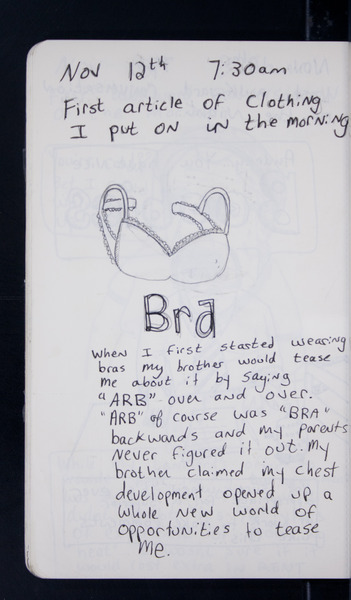 Nov 12th 7:30am
First article of Clothing
I put on in the morning
Bra
When I first started wearing
bras my brother would tease
me about it by saying
"ARB" over and over.
"ARB" of course was "BRA"
backwards and my parents
Never figured it out. My
brother claimed my chest
development opened up a
whole new world of
opportunities to tease
me.